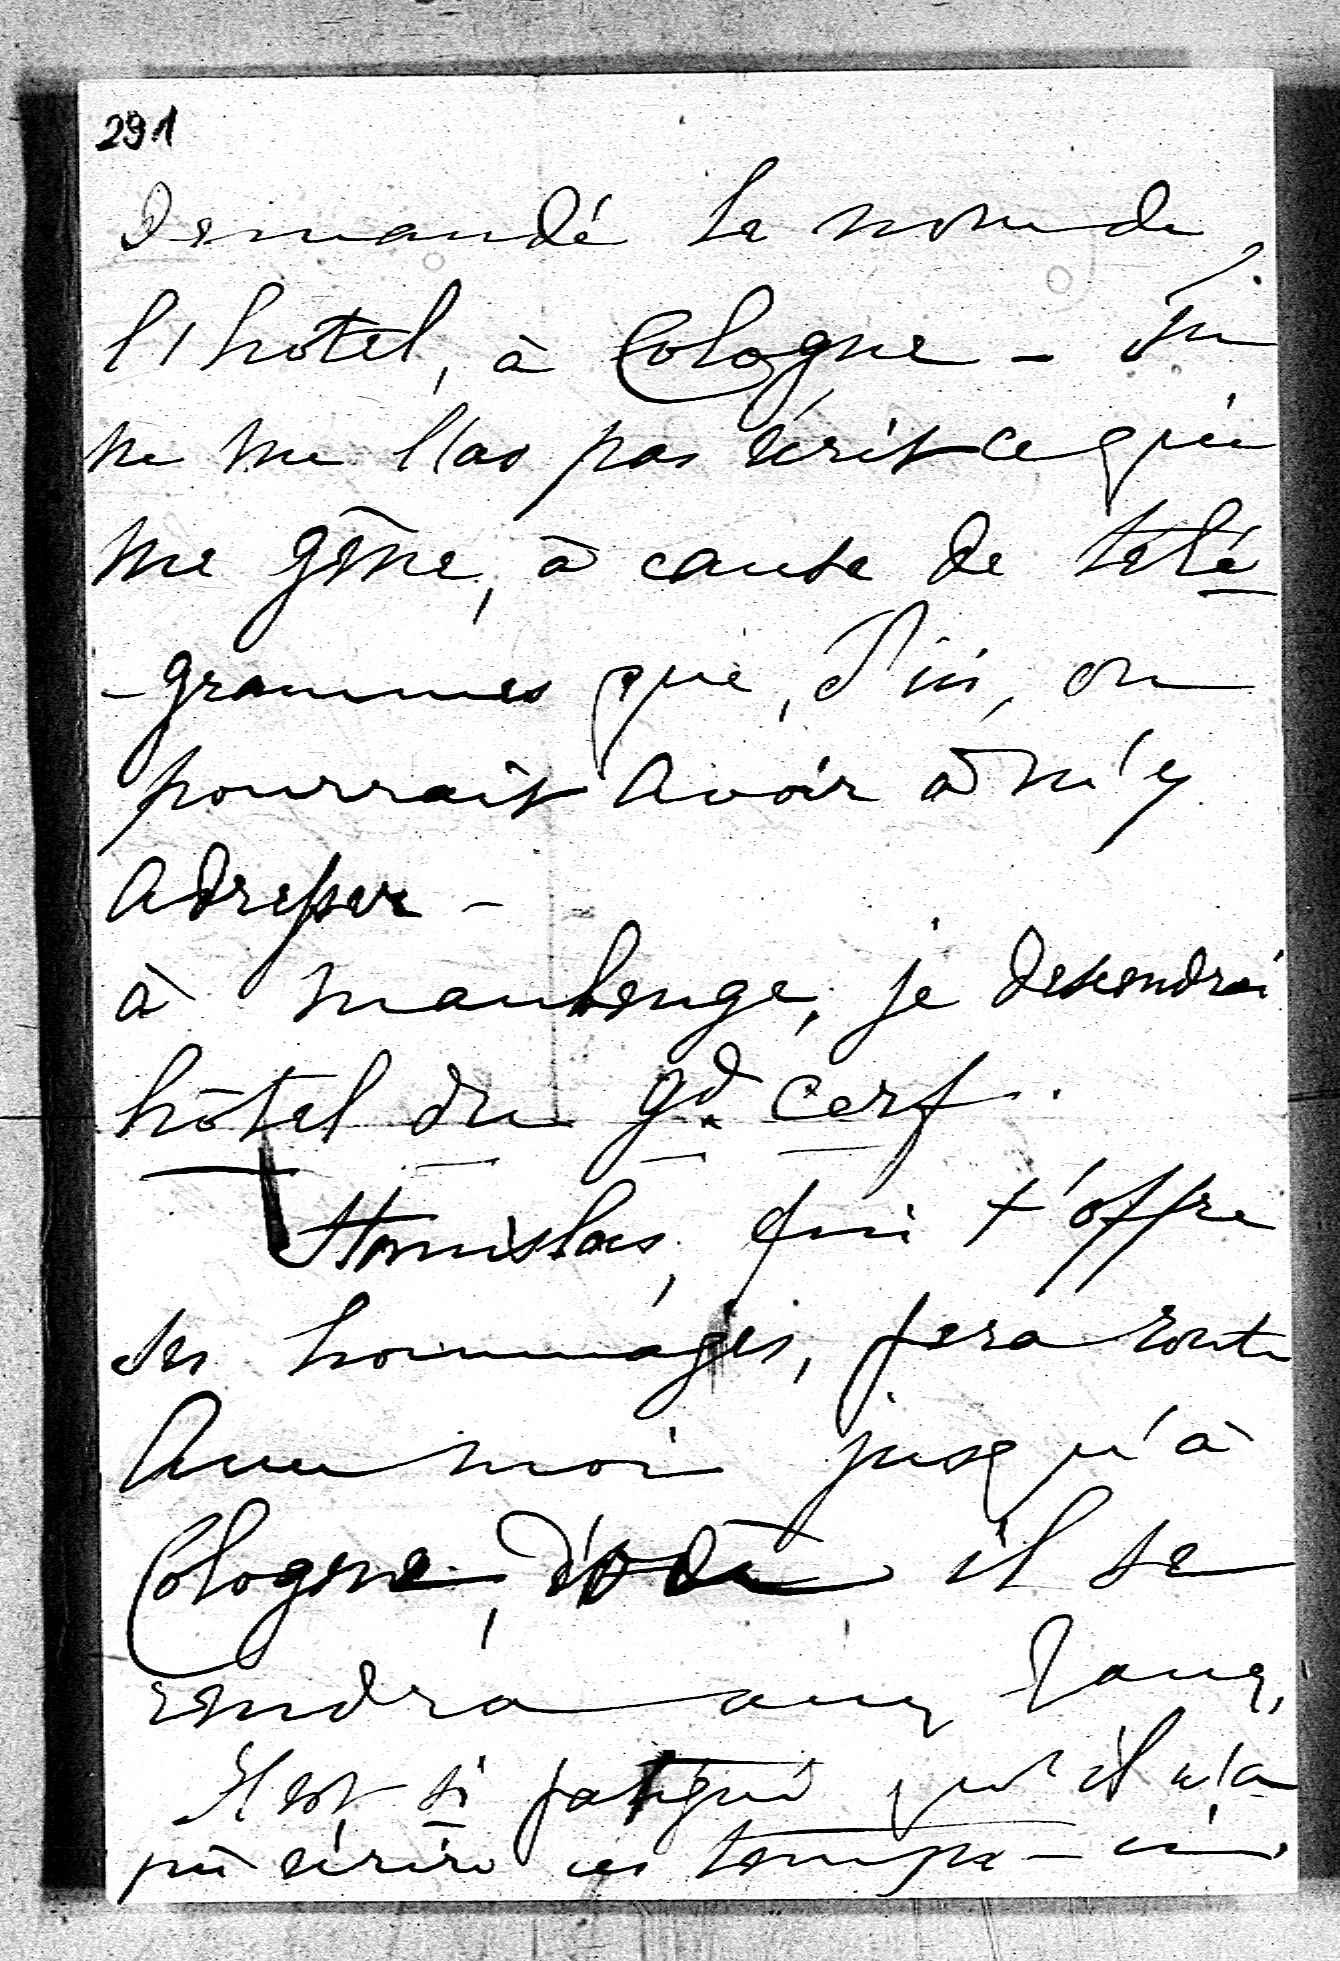 291
Demandé le nom de
l'hôtel, à Cologne - Tu
ne me l'as pas écrit ce qui
me gêne, à cause de télé
-grammes que, d'ici, on
pourrait avoir à m'y
adresser -
à Maubeuge, je descendrai
hôtel du gd. Cerf.
Stanislas, qui t'offre
ses hommages, fera route
avec moi jusqu'à
Cologne, d'où il se
rendra aux Eaux,
Il est si fatigué qu'il n'a
pû écrire ces temps-ci